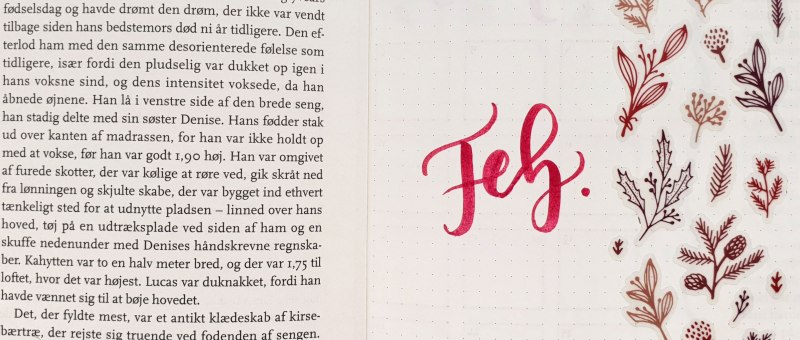 fødselsdag og havde drømt den drøm, der ikke var vendt
tilbage siden hans bedstemors død ni år tidligere. Den ef-
terlod ham med den samme desorienterede følelse som
tidligere, især fordi den pludselig var dukket op igen i
hans voksne sind, og dens intensitet voksede, da han
åbnede øjnene. Han lå i venstre side af den brede seng,
han stadig delte med sin søster Denise. Hans fødder stak
ud over kanten af madrassen, for han var ikke holdt op
med at vokse, før han var godt 1,90 høj. Han var omgivet
af furede skotter, der var kølige at røre ved, gik skråt ned
fra lønningen og skjulte skabe, der var bygget ind ethvert
tænkeligt sted for at udnytte pladsen – linned over hans
hoved, tøj på en udtræksplade ved siden af ham og en
skuffe nedenunder med Denises håndskrevne regnska-
ber. Kahytten var to en halv meter bred, og der var 1,75 til
loftet, hvor det var højest. Lucas var duknakket, fordi han
havde vænnet sig til at bøje hovedet.
Det, der fyldte mest, var et antikt klædeskab af kirse-
bærtræ, der rejste sig truende ved fodenden af sengen.
Feb.